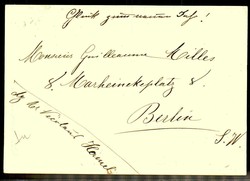 Glück zum neuen Jahr!
Monsieur Guilleaume Milles
8. Marheinekeplatz 8.
Berlin
S.W.